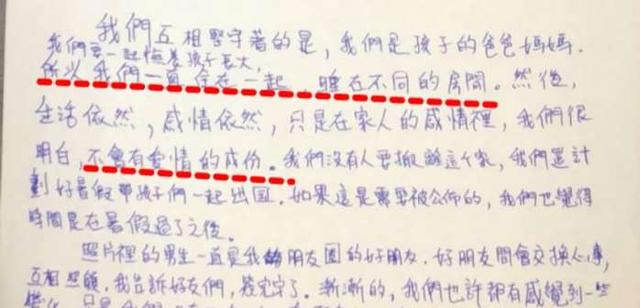 我們互相堅守著的是，我們是孩子的爸爸媽媽.
我們要一起陪養孩子長大,
所以我們一直住在一起，睡在不同的房間。然後,
生活依然，感情依然，只是在家人的感情裡，我們很
明白,不會有愛情的成份。我們沒有人要搬離這个家，我們還計
劃好暑假帶孩子們一起出国. 如果這是需要被公佈的，我們也覺得
時間是在暑假過了之後。
照片裡的男生一直是我朋友圈的好朋友. 好朋友間會交換心事,
互相照顧. 我告訴好友們, 簽完字了. 漸漸的, 我們也許都有感覺到一些